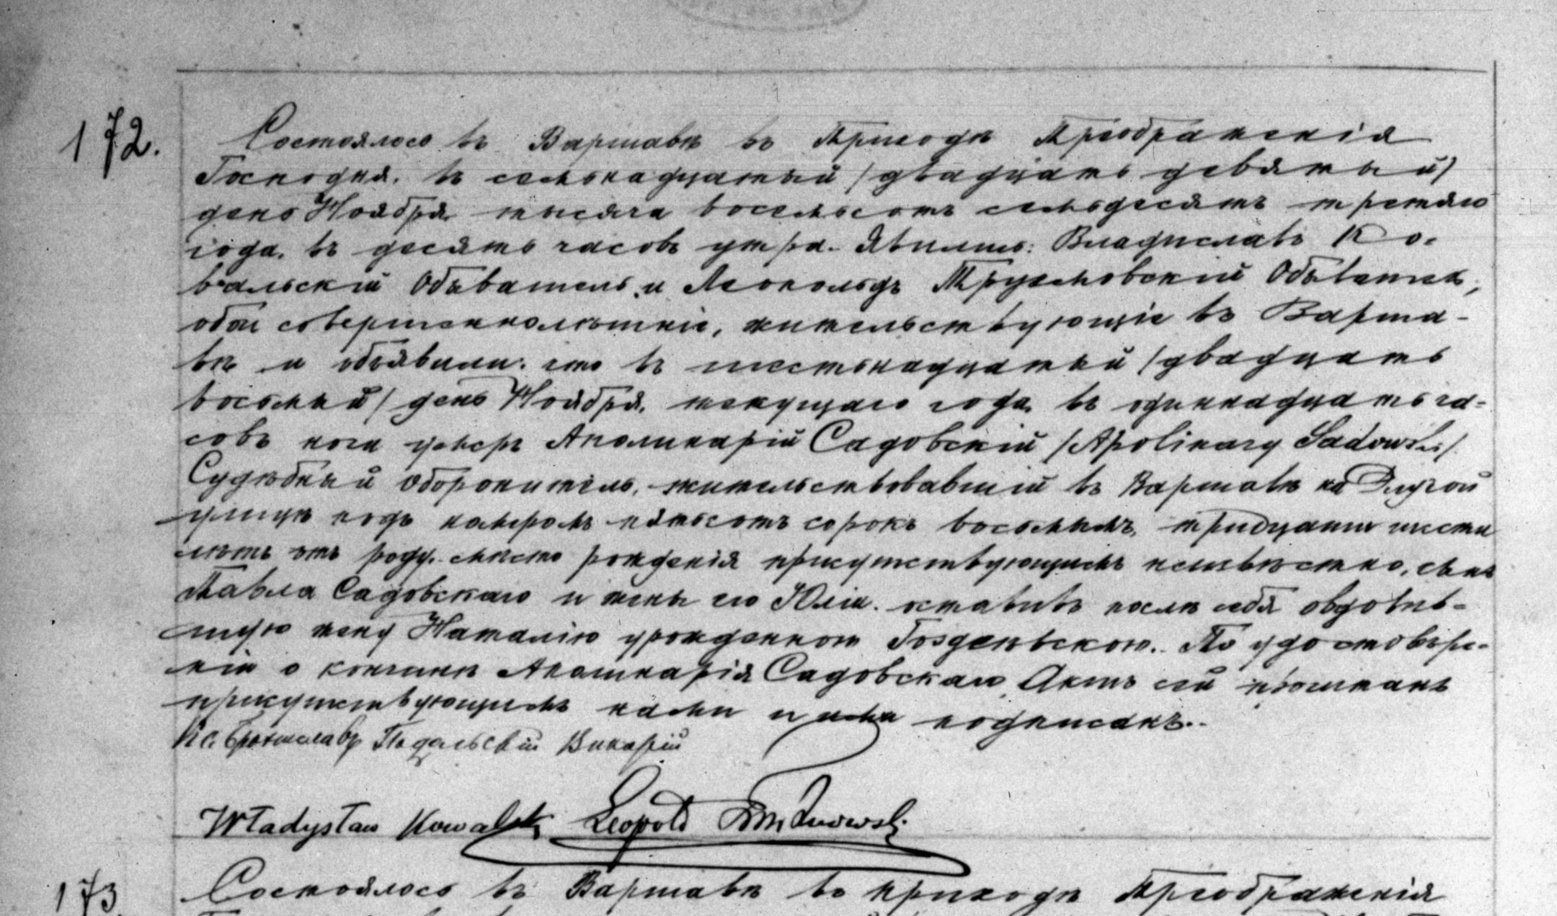 172.
Состоялось въ Варшавѣ въ Приходѣ Преображенія
Господня, въ семьнадцатый /двадцать девятый/
день Ноября тысяча восемьсотъ семьдесятъ третяго
года, въ десять часовъ утра. Явились: Владиславъ Ко-
вальскій Обыватель, и Леопольдъ Обыватель,
обои совершеннолѣтніе, жительствующіе въ Варша-
вѣ и объявили: что въ шестьнадцатый /двадцать
восьмый/ день Ноября, текущаго года, въ одиннадцать ча-
совъ ночи умеръ Аполинарій Садовскій /Apolinary Sadowski/
Судебный оборонитель, жительствовавшій въ Варшавѣ на Длугой
улицѣ подъ номеромъ пятьсотъ сорокъ восьмымъ, тридцати шести
лѣтъ отъ роду, мѣсто рожденія присутствующимъ неизвѣстно, сынъ
Павла Садовскаго и жены его Юліи. оставивъ послѣ себя овдовѣв-
шую жену Наталію урожденною По удостовѣре-
ніи о кончинѣ Аполинарія Садовскаго, Актъ сей прочитанъ
присутствующимъ нами и ими подписанъ.
Кс. Викарій
Władysław Kowalski Leopold
173
Состоялось въ Варшавѣ въ приходѣ Преображенія